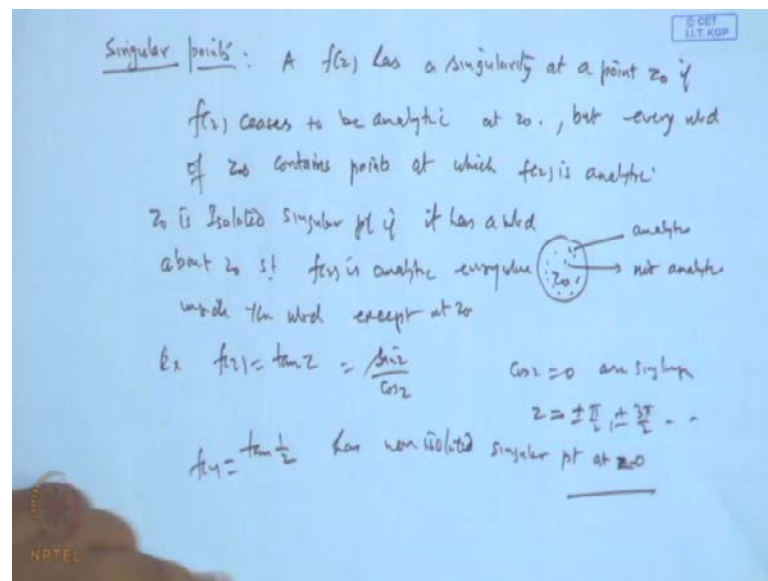 © CET
I.I.T. KGP
Singular points: A f(z) has a singularity at a point z0 if
f(z) ceases to be analytic at z0., but every nbd
of z0 contains points at which f(z) is analytic.
z0 is Isolated singular pt if it has a nbd
about z0 s! f(z) is analytic everywhere
inside the nbd except at z0
analytic
z0.
not analytic
Ex f(z) = tan z = sin z / cos z
cos z = 0 are
z = ± π/2, ± 3π/2 - -
f(z) = tan 1/z has non isolated singular pt at z=0
NPTEL